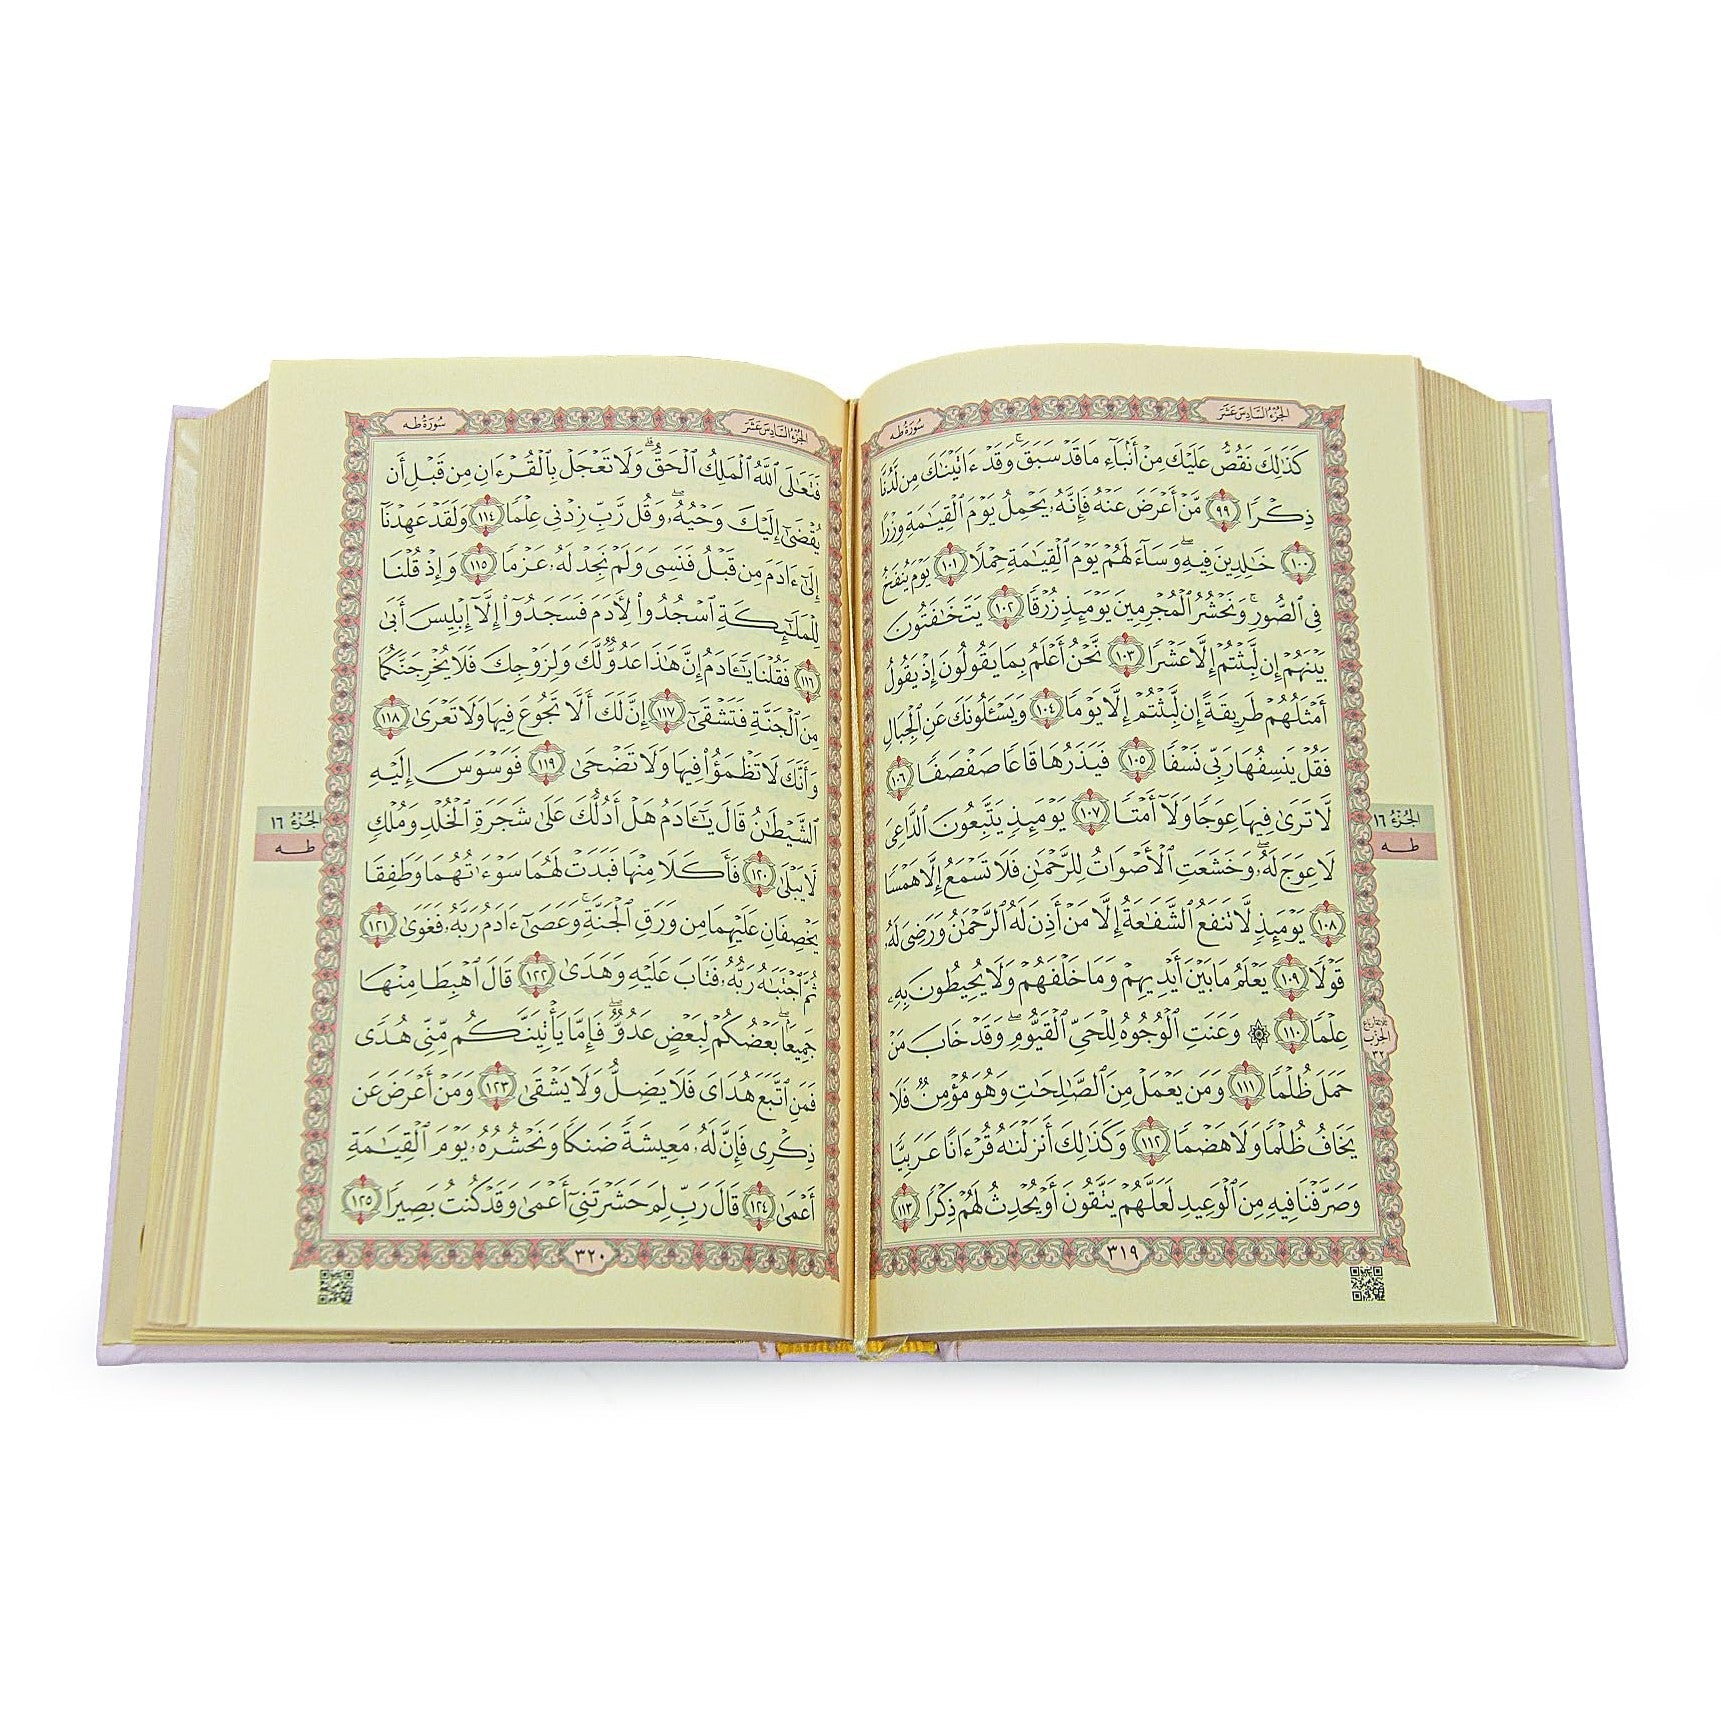 سُورَةُ طه
الجُزْءُ السَّادِسَ عَشَرَ
كَذَٰلِكَ نَقُصُّ عَلَيْكَ مِنْ أَنۢبَآءِ مَا قَدْ سَبَقَ ۚ وَقَدْ ءَاتَيْنَٰكَ مِن لَّدُنَّا
ذِكْرًا ٩٩ مَّنْ أَعْرَضَ عَنْهُ فَإِنَّهُۥ يَحْمِلُ يَوْمَ ٱلْقِيَٰمَةِ وِزْرًا
١٠٠ خَٰلِدِينَ فِيهِ ۖ وَسَآءَ لَهُمْ يَوْمَ ٱلْقِيَٰمَةِ حِمْلًا ١٠١ يَوْمَ يُنفَخُ
فِى ٱلصُّورِ ۚ وَنَحْشُرُ ٱلْمُجْرِمِينَ يَوْمَئِذٍ زُرْقًا ١٠٢ يَتَخَٰفَتُونَ
بَيْنَهُمْ إِن لَّبِثْتُمْ إِلَّا عَشْرًا ١٠٣ نَّحْنُ أَعْلَمُ بِمَا يَقُولُونَ إِذْ يَقُولُ
أَمْثَلُهُمْ طَرِيقَةً إِن لَّبِثْتُمْ إِلَّا يَوْمًا ١٠٤ وَيَسْـَٔلُونَكَ عَنِ ٱلْجِبَالِ
فَقُلْ يَنسِفُهَا رَبِّى نَسْفًا ١٠٥ فَيَذَرُهَا قَاعًا صَفْصَفًا ١٠٦
لَّا تَرَىٰ فِيهَا عِوَجًا وَلَآ أَمْتًا ١٠٧ يَوْمَئِذٍ يَتَّبِعُونَ ٱلدَّاعِىَ
لَا عِوَجَ لَهُۥ ۖ وَخَشَعَتِ ٱلْأَصْوَاتُ لِلرَّحْمَٰنِ فَلَا تَسْمَعُ إِلَّا هَمْسًا
١٠٨ يَوْمَئِذٍ لَّا تَنفَعُ ٱلشَّفَٰعَةُ إِلَّا مَنْ أَذِنَ لَهُ ٱلرَّحْمَٰنُ وَرَضِىَ لَهُۥ
قَوْلًا ١٠٩ يَعْلَمُ مَا بَيْنَ أَيْدِيهِمْ وَمَا خَلْفَهُمْ وَلَا يُحِيطُونَ بِهِۦ
عِلْمًا ١١٠ ۞ وَعَنَتِ ٱلْوُجُوهُ لِلْحَىِّ ٱلْقَيُّومِ ۖ وَقَدْ خَابَ مَنْ
حَمَلَ ظُلْمًا ١١١ وَمَن يَعْمَلْ مِنَ ٱلصَّٰلِحَٰتِ وَهُوَ مُؤْمِنٌ فَلَا
يَخَافُ ظُلْمًا وَلَا هَضْمًا ١١٢ وَكَذَٰلِكَ أَنزَلْنَٰهُ قُرْءَانًا عَرَبِيًّا
وَصَرَّفْنَا فِيهِ مِنَ ٱلْوَعِيدِ لَعَلَّهُمْ يَتَّقُونَ أَوْ يُحْدِثُ لَهُمْ ذِكْرًا ١١٣
٣١٩
الجُزْءُ ١٦
طه
ثلاثة أرباع
الحزب
٣٢
سُورَةُ طه
الجُزْءُ السَّادِسَ عَشَرَ
فَتَعَٰلَى ٱللَّهُ ٱلْمَلِكُ ٱلْحَقُّ ۗ وَلَا تَعْجَلْ بِٱلْقُرْءَانِ مِن قَبْلِ أَن
يُقْضَىٰٓ إِلَيْكَ وَحْيُهُۥ ۖ وَقُل رَّبِّ زِدْنِى عِلْمًا ١١٤ وَلَقَدْ عَهِدْنَآ
إِلَىٰٓ ءَادَمَ مِن قَبْلُ فَنَسِىَ وَلَمْ نَجِدْ لَهُۥ عَزْمًا ١١٥ وَإِذْ قُلْنَا
لِلْمَلَٰٓئِكَةِ ٱسْجُدُوا۟ لِـَٔادَمَ فَسَجَدُوٓا۟ إِلَّآ إِبْلِيسَ أَبَىٰ
١١٦ فَقُلْنَا يَٰٓـَٔادَمُ إِنَّ هَٰذَا عَدُوٌّ لَّكَ وَلِزَوْجِكَ فَلَا يُخْرِجَنَّكُمَا
مِنَ ٱلْجَنَّةِ فَتَشْقَىٰٓ ١١٧ إِنَّ لَكَ أَلَّا تَجُوعَ فِيهَا وَلَا تَعْرَىٰ ١١٨
وَأَنَّكَ لَا تَظْمَؤُا۟ فِيهَا وَلَا تَضْحَىٰ ١١٩ فَوَسْوَسَ إِلَيْهِ
ٱلشَّيْطَٰنُ قَالَ يَٰٓـَٔادَمُ هَلْ أَدُلُّكَ عَلَىٰ شَجَرَةِ ٱلْخُلْدِ وَمُلْكٍ
لَّا يَبْلَىٰ ١٢٠ فَأَكَلَا مِنْهَا فَبَدَتْ لَهُمَا سَوْءَٰتُهُمَا وَطَفِقَا
يَخْصِفَانِ عَلَيْهِمَا مِن وَرَقِ ٱلْجَنَّةِ ۚ وَعَصَىٰٓ ءَادَمُ رَبَّهُۥ فَغَوَىٰ ١٢١
ثُمَّ ٱجْتَبَٰهُ رَبُّهُۥ فَتَابَ عَلَيْهِ وَهَدَىٰ ١٢٢ قَالَ ٱهْبِطَا مِنْهَا
جَمِيعًۢا ۖ بَعْضُكُمْ لِبَعْضٍ عَدُوٌّ ۖ فَإِمَّا يَأْتِيَنَّكُم مِّنِّى هُدًى
فَمَنِ ٱتَّبَعَ هُدَاىَ فَلَا يَضِلُّ وَلَا يَشْقَىٰ ١٢٣ وَمَنْ أَعْرَضَ عَن
ذِكْرِى فَإِنَّ لَهُۥ مَعِيشَةً ضَنكًا وَنَحْشُرُهُۥ يَوْمَ ٱلْقِيَٰمَةِ
أَعْمَىٰ ١٢٤ قَالَ رَبِّ لِمَ حَشَرْتَنِىٓ أَعْمَىٰ وَقَدْ كُنتُ بَصِيرًا ١٢٥
٣٢٠
الجُزْءُ ١٦
طه